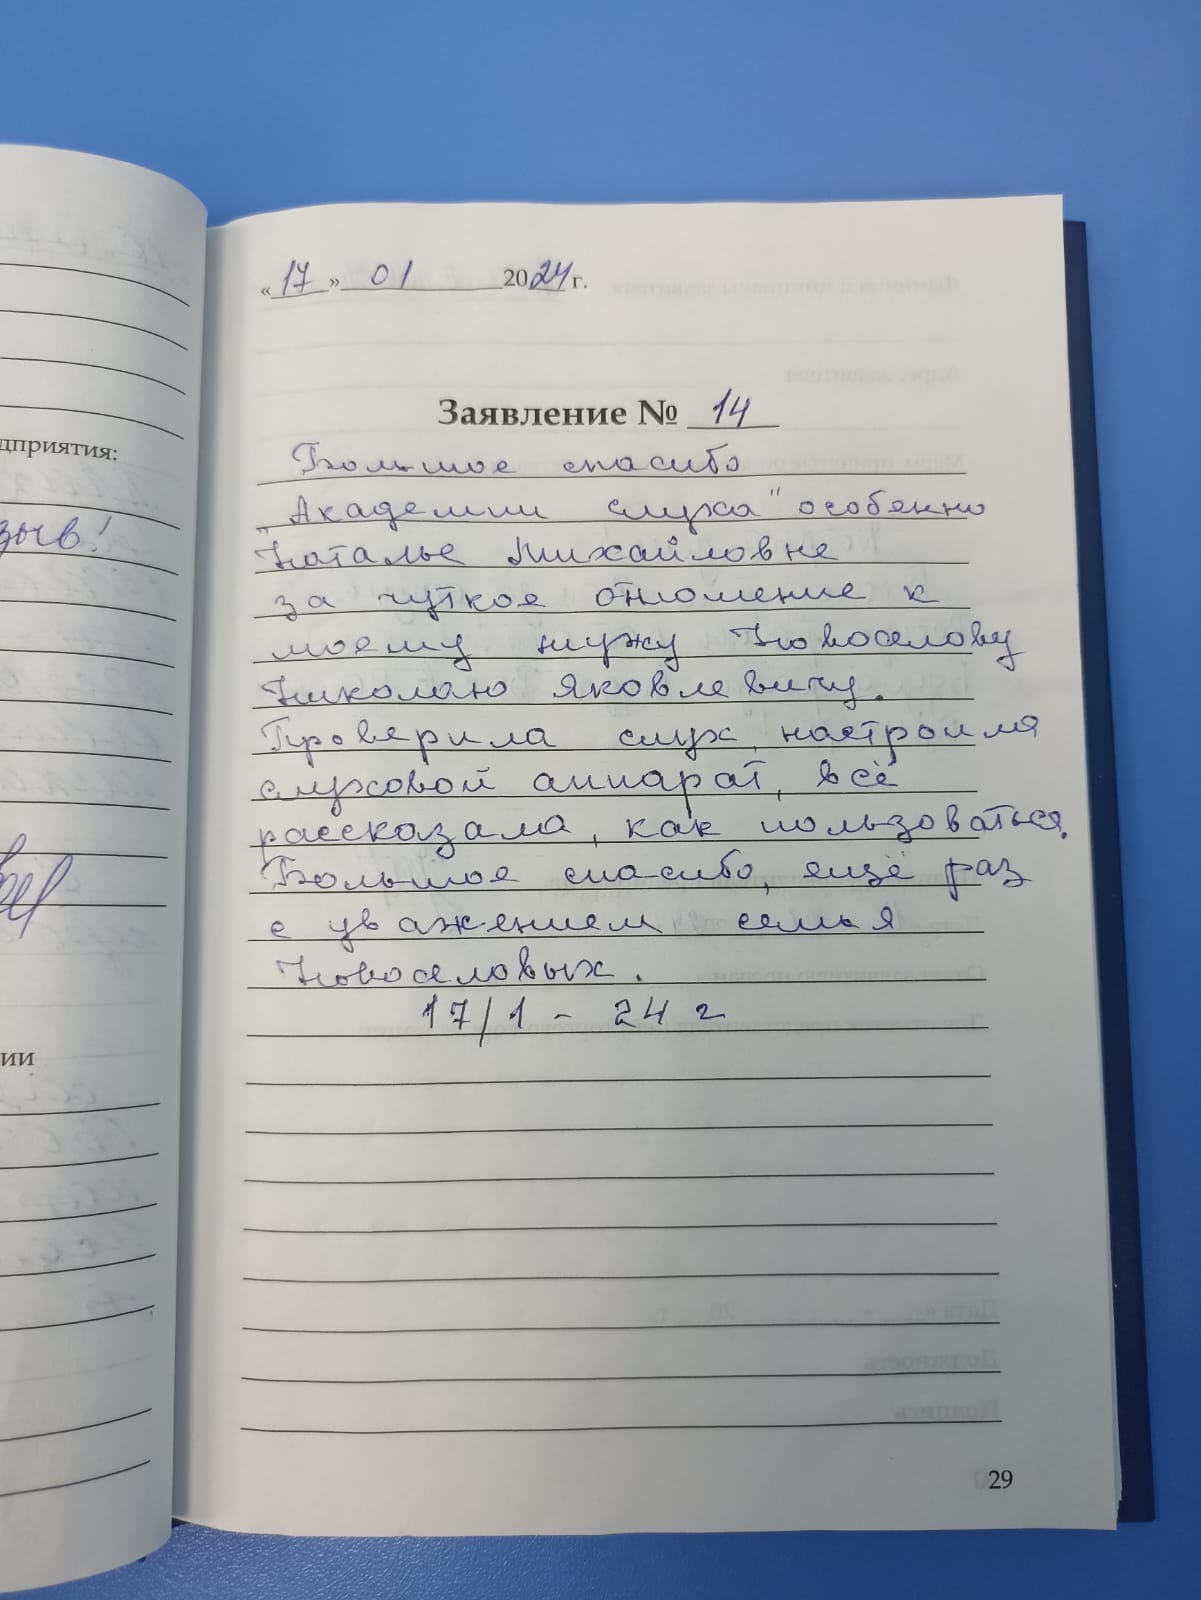 дприятия:
зыв!
ии
«17» 01 2024 г.
Заявление № 14
Большое спасибо
"Академии слуха" особенно
Наталье Михайловне
за чуткое отношение к
моему мужу Новоселову
Николаю Яковлевичу.
Проверила слух, настроила
слуховой аппарат, всё
рассказала, как пользоваться.
Большое спасибо, ещё раз
с уважением семья
Новоселовых.
17/1 - 24 г
29